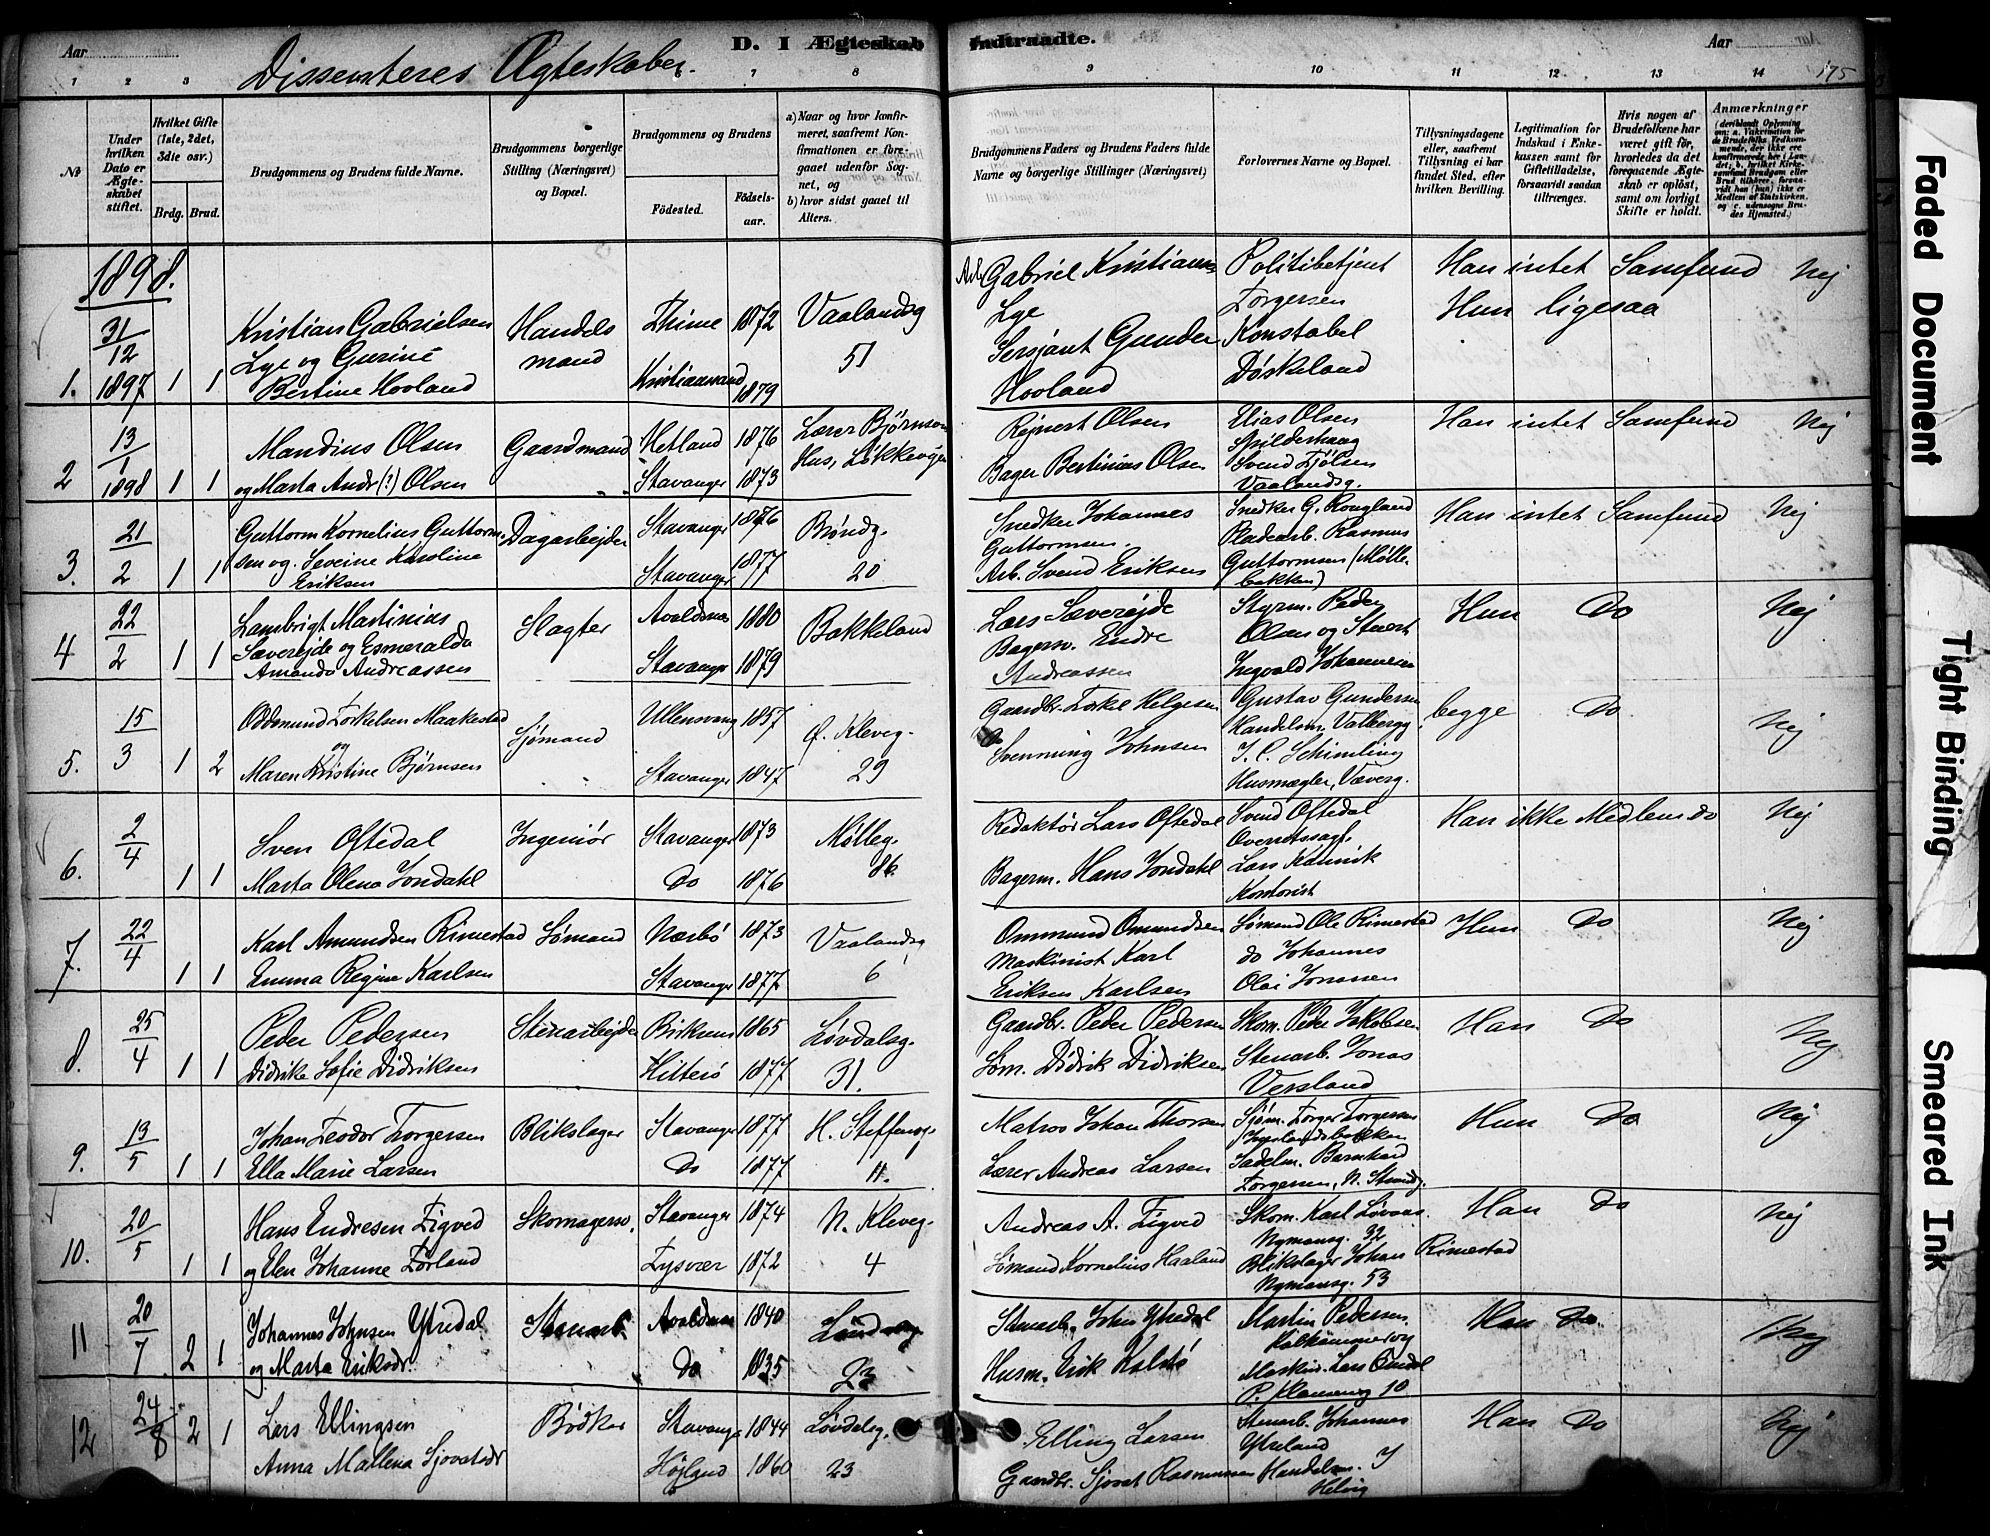 Aar
Dissenteres Ægteskaber.
D. I Ægteskab Indtraadte.
Aar
175
1 2 3 7 8 9 10 11 12 13 14
No
Under hvilken Dato er Ægteskabet stiftet.
Hvilket Gifte (1ste, 2det, 3die osv.)
Brdg. Brud.
Brudgommens og Brudens fulde Navne.
Brudgommens borgerlige Stilling (Næringsvei) og Bopæl.
Brudgommens og Brudens
Fødested.
Fødsels-aar.
a) Naar og hvor konfirmeret, saafremt Konfirmationen er foregaaet udenfor Sognet, og
b) hvor sidst gaaet til Alters.
Brudgommens Faders og Brudens Faders fulde Navne og borgerlige Stillinger (Næringsvei)
Forlovernes Navne og Bopæl.
Tillysningsdagene eller, saafremt Tillysning ei har fundet Sted, efter hvilken Bevilling.
Legitimation for Indskud i Enkekassen samt for Giftetilladelse, forsaavidt saadan tiltrænges.
Hvis nogen af Brudefolkene har været gift før, hvorledes da det foregaaende Ægteskab er opløst, samt om lovligt Skifte er holdt.
Anmærkninger
1898.
1. 31/12 1897 1 1
Kristian Gabrielsen
Lye og Gurine
Bertine Hovland
Handels
mand
Thime 1872
Kristianssand 1879
Vaalandsg
51
Arb. Gabriel Kristiansen
Lye
Sersjant Gunder
Hovland
Politibetjent
Torgersen
Konstabel
Døskeland
Han intet Samfund
Hun ligesaa
Nej
2 13/1 1898 1 1
Mandius Olsen
og Marta Andr(?) Olsen
Gaardmand
Hetland 1876
Stavanger 1873
Lærer Bjørnson
Hus, Løkkevejen
Rejnert Olsen
Bager Bertinius Olsen
Elias Olsen
Svend Tjølsen
Vaalandsg.
Han intet Samfund
Nej
3. 21/2 1 1
Guttorm Kornelius Guttorm-
sen og Severine Karoline
Eriksen
Dagarbejder
Stavanger 1876
Stavanger 1877
Brøndg.
20
Snedker Johannes
Guttormsen.
Arb. Svend Eriksen
Snedker G. Rougland
Pladearb. Rasmus
Guttormsen (Mølle-
bakken)
Han intet Samfund
Nej
4 22/2 1 1
Lambrigt Martinius
Sæverejde og Esmeralda
Amanda Andreassen
Slagter
Avaldsnes 1880
Stavanger 1879
Bakkeland
Lars Sæverejde
Bagersv. Endre
Andreassen
Styrm. Peder
Olsen og Stuert
Ingvald Johannesen
Hun Do
Nej
5. 15/3 1 2
Oddmund Torkelsen Maakestad
og
Maren Kristine Bjørnsen
Sjømand
Ullensvang 1857
Stavanger 1847
Ø. Kleveg.
29
Gaardbr. Torkel Helgesen
Svenning Johnsen
Gustav Gundersen
Handelsm. Valbergg.
J. C. Schimling
Husmægler, Væverg.
begge Do
Nej
6. 2/4 1 1
Sven Oftedal
Marta Olena Jondahl
Ingeniør
Stavanger 1873
Do 1876
Mølleg.
86
Redaktør Lars Oftedal
Bagerm. Hans Jondahl
Svend Oftedal
Lars Kannik
Kontorist
Han ikke Medlem do
Nej
7. 22/4 1 1
Karl Amundsen Rimestad
Emma Regine Karlsen
Sømand
Nærbø 1873
Stavanger 1877
Vaalandsg
6
Ommund Omundsen
Maskinist Karl
Eriksen Karlsen
Sømand Ole Rimestad
do Johannes
Olai Jonassen
Hun Do
Nej
8. 25/4 1 1
Peder Pedersen
Didrike Sofie Didriksen
Stenarbejder
Birkrem 1865
Hitterø 1877
Løvdalsg.
31.
Gaardbr. Peder Pedersen
Søm. Didrik Didriksen
Skom. Peder Jakobsen
Stenarb. Jonas
Versland
Han Do
Nej
9. 13/5 1 1
Johan Teodor Torgersen
Ella Marie Larsen
Blikslager
Stavanger 1877
Do 1877
H. Steffensg.
11.
Matros Johan Thorsen
Lærer Andreas Larsen
Sjøm. Torger Torgersen
Sadelm. Barnhard
Torgersen, N. Strandg.
Hun Do
Nej
10. 20/5 1 1
Hans Endresen Tigved
og Elen Johanne Førland
Skomagersv.
Stavanger 1874
Tysvær 1872
N. Kleveg.
4
Andreas A. Tigved
Sømand Kornelius Haaland
Skom. Karl Løvaas
Nymansg. 32
Blikslager Johan Rimestad
Nymansg. 53
Han Do
Nej
11 20/7 2 1
Johannes Johnsen Ytredal
og Marta Eriksdr.
Stenarb.
Avaldsnes 1840
Do 1835
23
Stenarb. John Ytredal
Husm. Erik Kolstø
Martin Pedersen
Maskin. Lars Omdal
10
Han Do.
Nej
12 24/8 2 1
Lars Ellingsen
Anna Mallena Sjovatsdr
Bødker
Stavanger 1844
Højland 1860
Løvdalsg.
23
Elling Larsen
Gaardbr. Sjovat Rasmussen
Stenarb. Johannes
Ytreland
Handelsm. J
Helvig
Han Do
Nej
Faded Document
Tight Binding
Smeared Ink